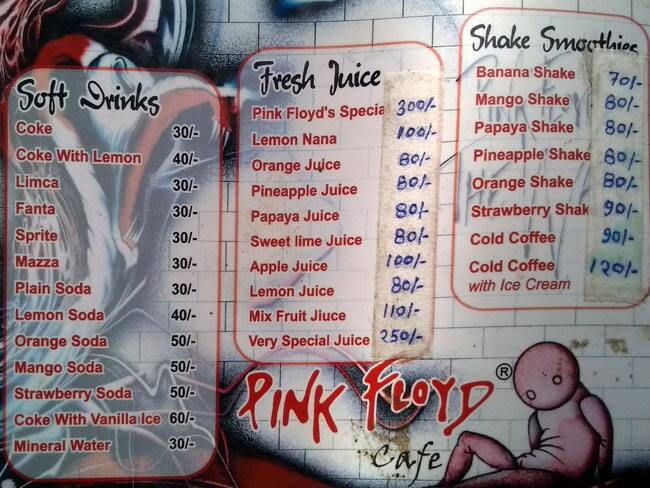 Soft Drinks
Coke 30/-
Coke With Lemon 40/-
Limca 30/-
Fanta 30/-
Sprite 30/-
Mazza 30/-
Plain Soda 30/-
Lemon Soda 40/-
Orange Soda 50/-
Mango Soda 50/-
Strawberry Soda 50/-
Coke With Vanilla Ice 60/-
Mineral Water 30/-
Fresh Juice
Pink Floyd's Specia 300/-
Lemon Nana 100/-
Orange Juice 80/-
Pineapple Juice 80/-
Papaya Juice 80/-
Sweet lime Juice 80/-
Apple Juice 100/-
Lemon Juice 80/-
Mix Fruit Jiuce 110/-
Very Special Juice 250/-
Shake Smoothies
Banana Shake 70/-
Mango Shake 80/-
Papaya Shake 80/-
Pineapple Shake 80/-
Orange Shake 80/-
Strawberry Shak 90/-
Cold Coffee 90/-
Cold Coffee 120/-
with Ice Cream
PINK FLOYD ®
Cafe